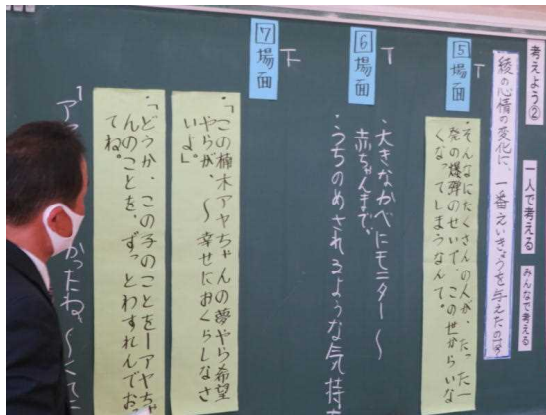 考えよう②
一人で考える
みんなで考える
綾の心情の変化に、一番えいきょうを与えたの
T
5場面
・そんなにたくさんの人が、たった一
発の爆弾のせいで、この世からいな
くなってしまうなんて。
T
6場面
・大きなかべにモニター〜
赤ちゃんまで。
・うちのめされるような気持
T
7場面
・「この楠木アヤちゃんの夢やら希望
やらが、〜幸せにおくらしなさ
いよ」。
・「どうか、この子のことを―アヤちゃ
んのことを、ずっとわすれんでお
てね。
かったね、〜くて